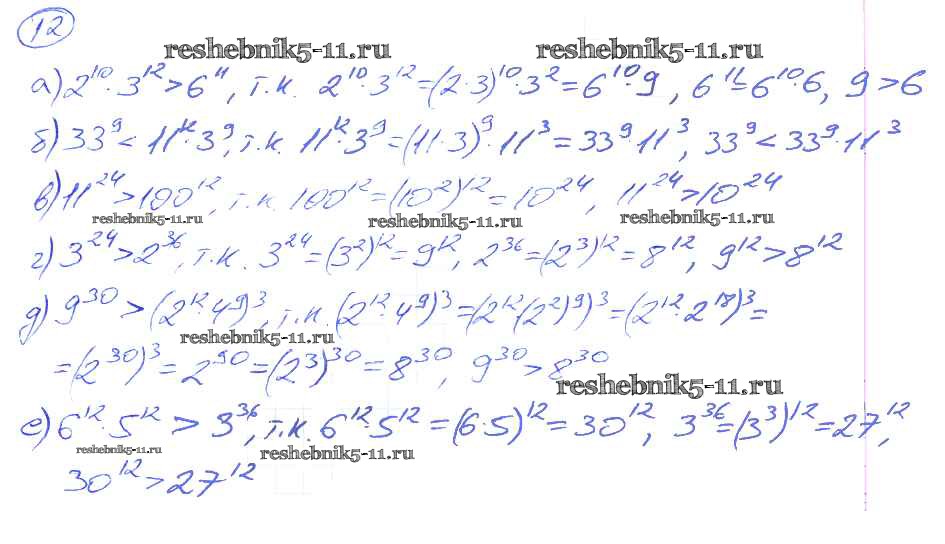 12
reshebnik5-11.ru reshebnik5-11.ru
а) 2^10 · 3^12 > 6^11, т.к. 2^10 · 3^12 = (2·3)^10 · 3^2 = 6^10 · 9, 6^11 = 6^10 · 6, 9 > 6
б) 33^9 < 11^12 · 3^9, т.к. 11^12 · 3^9 = (11·3)^9 · 11^3 = 33^9 · 11^3, 33^9 < 33^9 · 11^3
в) 11^24 > 100^12, т.к. 100^12 = (10^2)^12 = 10^24, 11^24 > 10^24
reshebnik5-11.ru reshebnik5-11.ru reshebnik5-11.ru
г) 3^24 > 2^36, т.к. 3^24 = (3^2)^12 = 9^12, 2^36 = (2^3)^12 = 8^12, 9^12 > 8^12
д) 9^30 > (2^12 · 4^9)^3, т.к. (2^12 · 4^9)^3 = (2^12 (2^2)^9)^3 = (2^12 · 2^18)^3 =
reshebnik5-11.ru
= (2^30)^3 = 2^90 = (2^3)^30 = 8^30, 9^30 > 8^30
reshebnik5-11.ru
е) 6^12 · 5^12 > 3^36, т.к. 6^12 · 5^12 = (6·5)^12 = 30^12, 3^36 = (3^3)^12 = 27^12,
reshebnik5-11.ru reshebnik5-11.ru
30^12 > 27^12